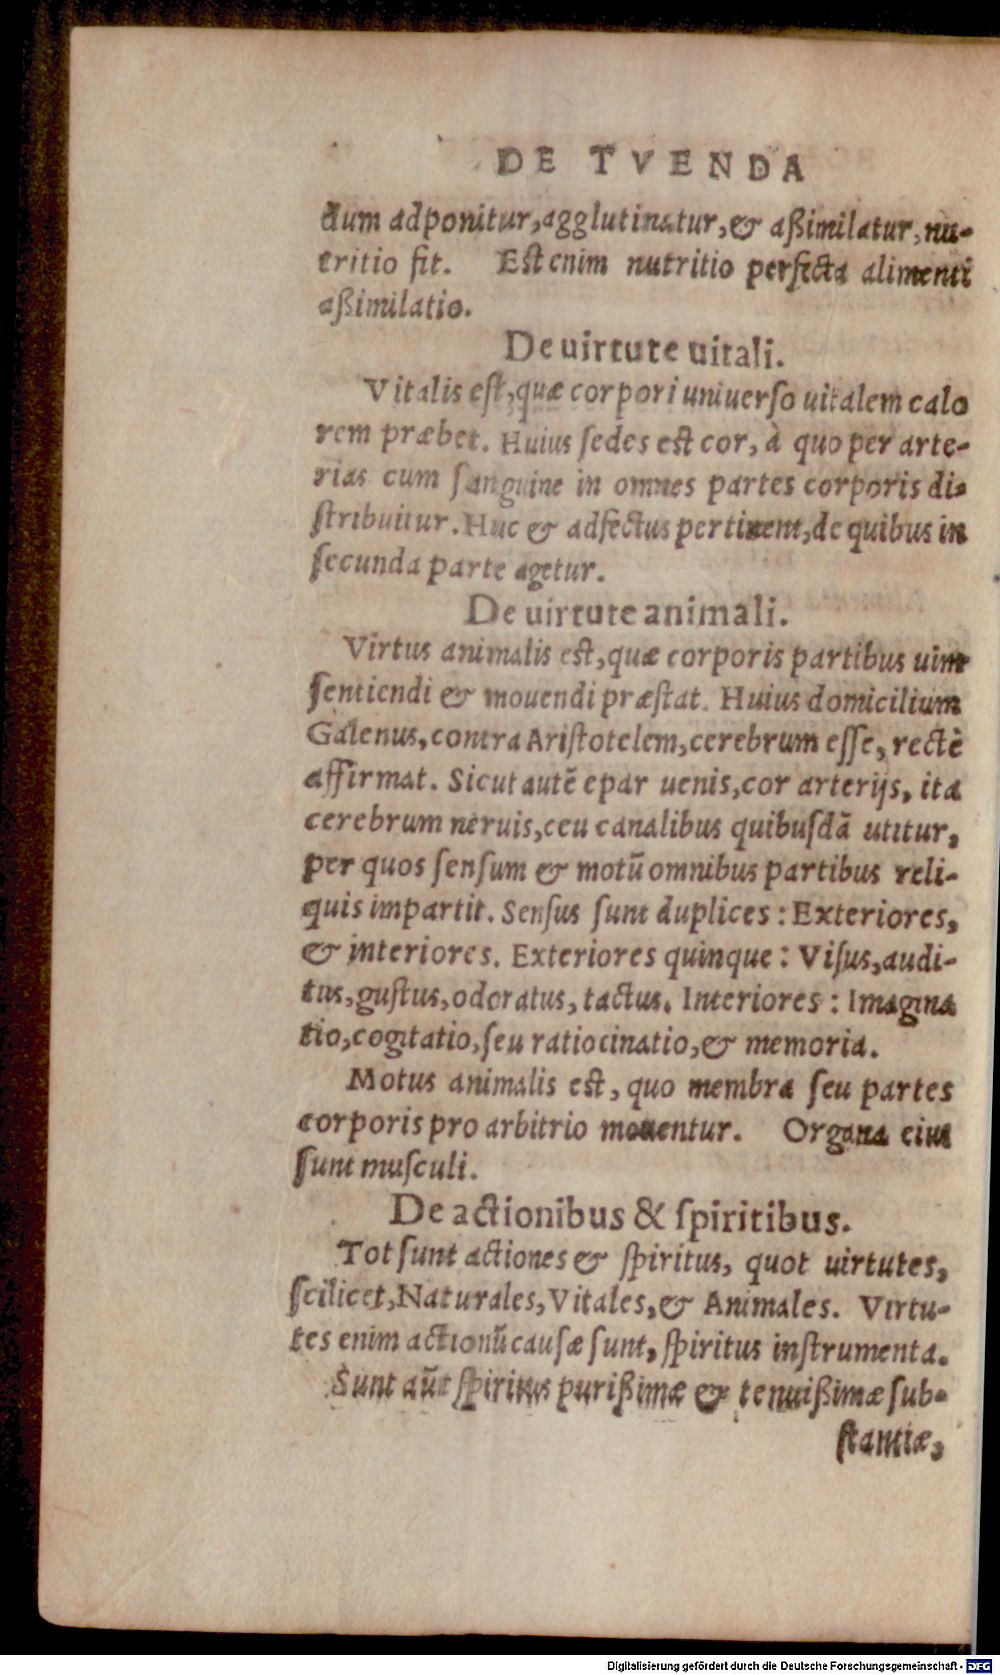 DE TVENDA
dum adponitur, agglutinatur, & aßimilatur, nu-
tritio fit. Est enim nutritio perfecta alimenti
aßimilatio.
De uirtute uitali.
Vitalis eſt, quæ corpori uniuerſo uitalem calo
rem præbet. Huius ſedes est cor, à quo per arte-
rias cum ſanguine in omnes partes corporis di-
ſtribuitur. Huc & adfectus pertinent, de quibus in
ſecunda parte agetur.
De uirtute animali.
Virtus animalis eſt, quæ corporis partibus uim
ſentiendi & mouendi præſtat. Huius domicilium
Galenus, contra Ariſtotelem, cerebrum eſſe, rectè
affirmat. Sicut autē epar uenis, cor arterijs, ita
cerebrum neruis, ceu canalibus quibuſdā utitur,
per quos ſenſum & motū omnibus partibus reli-
quis impartit. Senſus ſunt duplices: Exteriores,
& interiores. Exteriores quinque: Viſus, audi-
tus, guſtus, odoratus, tactus. Interiores: Imagina
tio, cogitatio, ſeu ratiocinatio, & memoria.
Motus animalis est, quo membra ſeu partes
corporis pro arbitrio mouentur. Organa eius
ſunt muſculi.
De actionibus & ſpiritibus.
Tot ſunt actiones & ſpiritus, quot uirtutes,
ſcilicet, Naturales, Vitales, & Animales. Virtu-
tes enim actionū cauſæ ſunt, ſpiritus inſtrumenta.
Sunt aūt ſpiritus purißimæ & tenuißimæ ſub-
ſtantiæ,
Digitalisierung gefördert durch die Deutsche Forschungsgemeinschaft - DFG